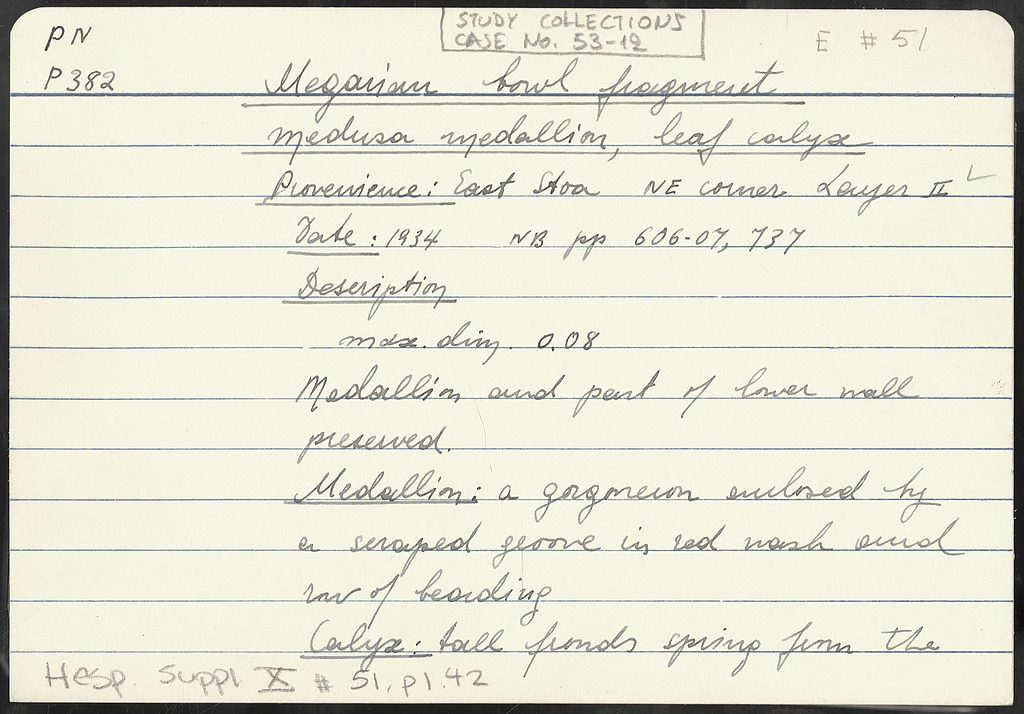 PN
STUDY COLLECTIONS
CASE No. 53-12
E # 51
P 382
Megarian bowl fragment
medusa medallion, leaf calyx
Provenience: East Stoa NE corner Layer II
Date: 1934 NB pp 606-07, 737
Description
max. dim. 0.08
Medallion and part of lower wall
preserved.
Medallion: a gorgoneion enclosed by
a scraped groove in red wash and
row of beading
Calyx: tall fronds spring from the
Hesp. Suppl. X # 51, pl. 42